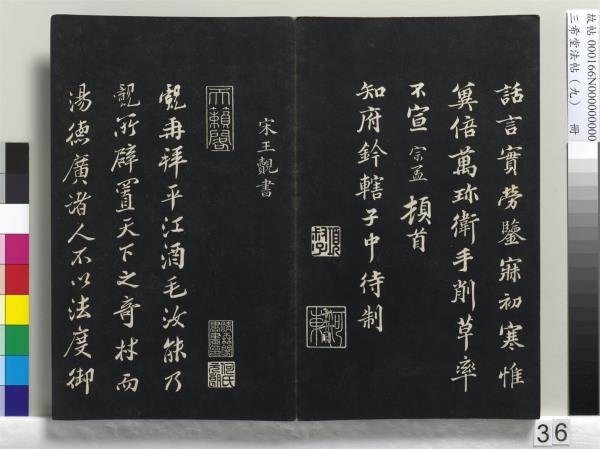 話言實勞鑒寐初寒惟
冀倍萬珎衛手削草率
不宣 宗孟 頓首
知府鈐轄子中待制
宋王覿書
覿再拜平江酒毛汝能乃
親所辟置天下之奇材而
湯德廣諸人不以法度御
天籟閣
故帖 000166N000000000
三希堂法帖（九） 冊
36